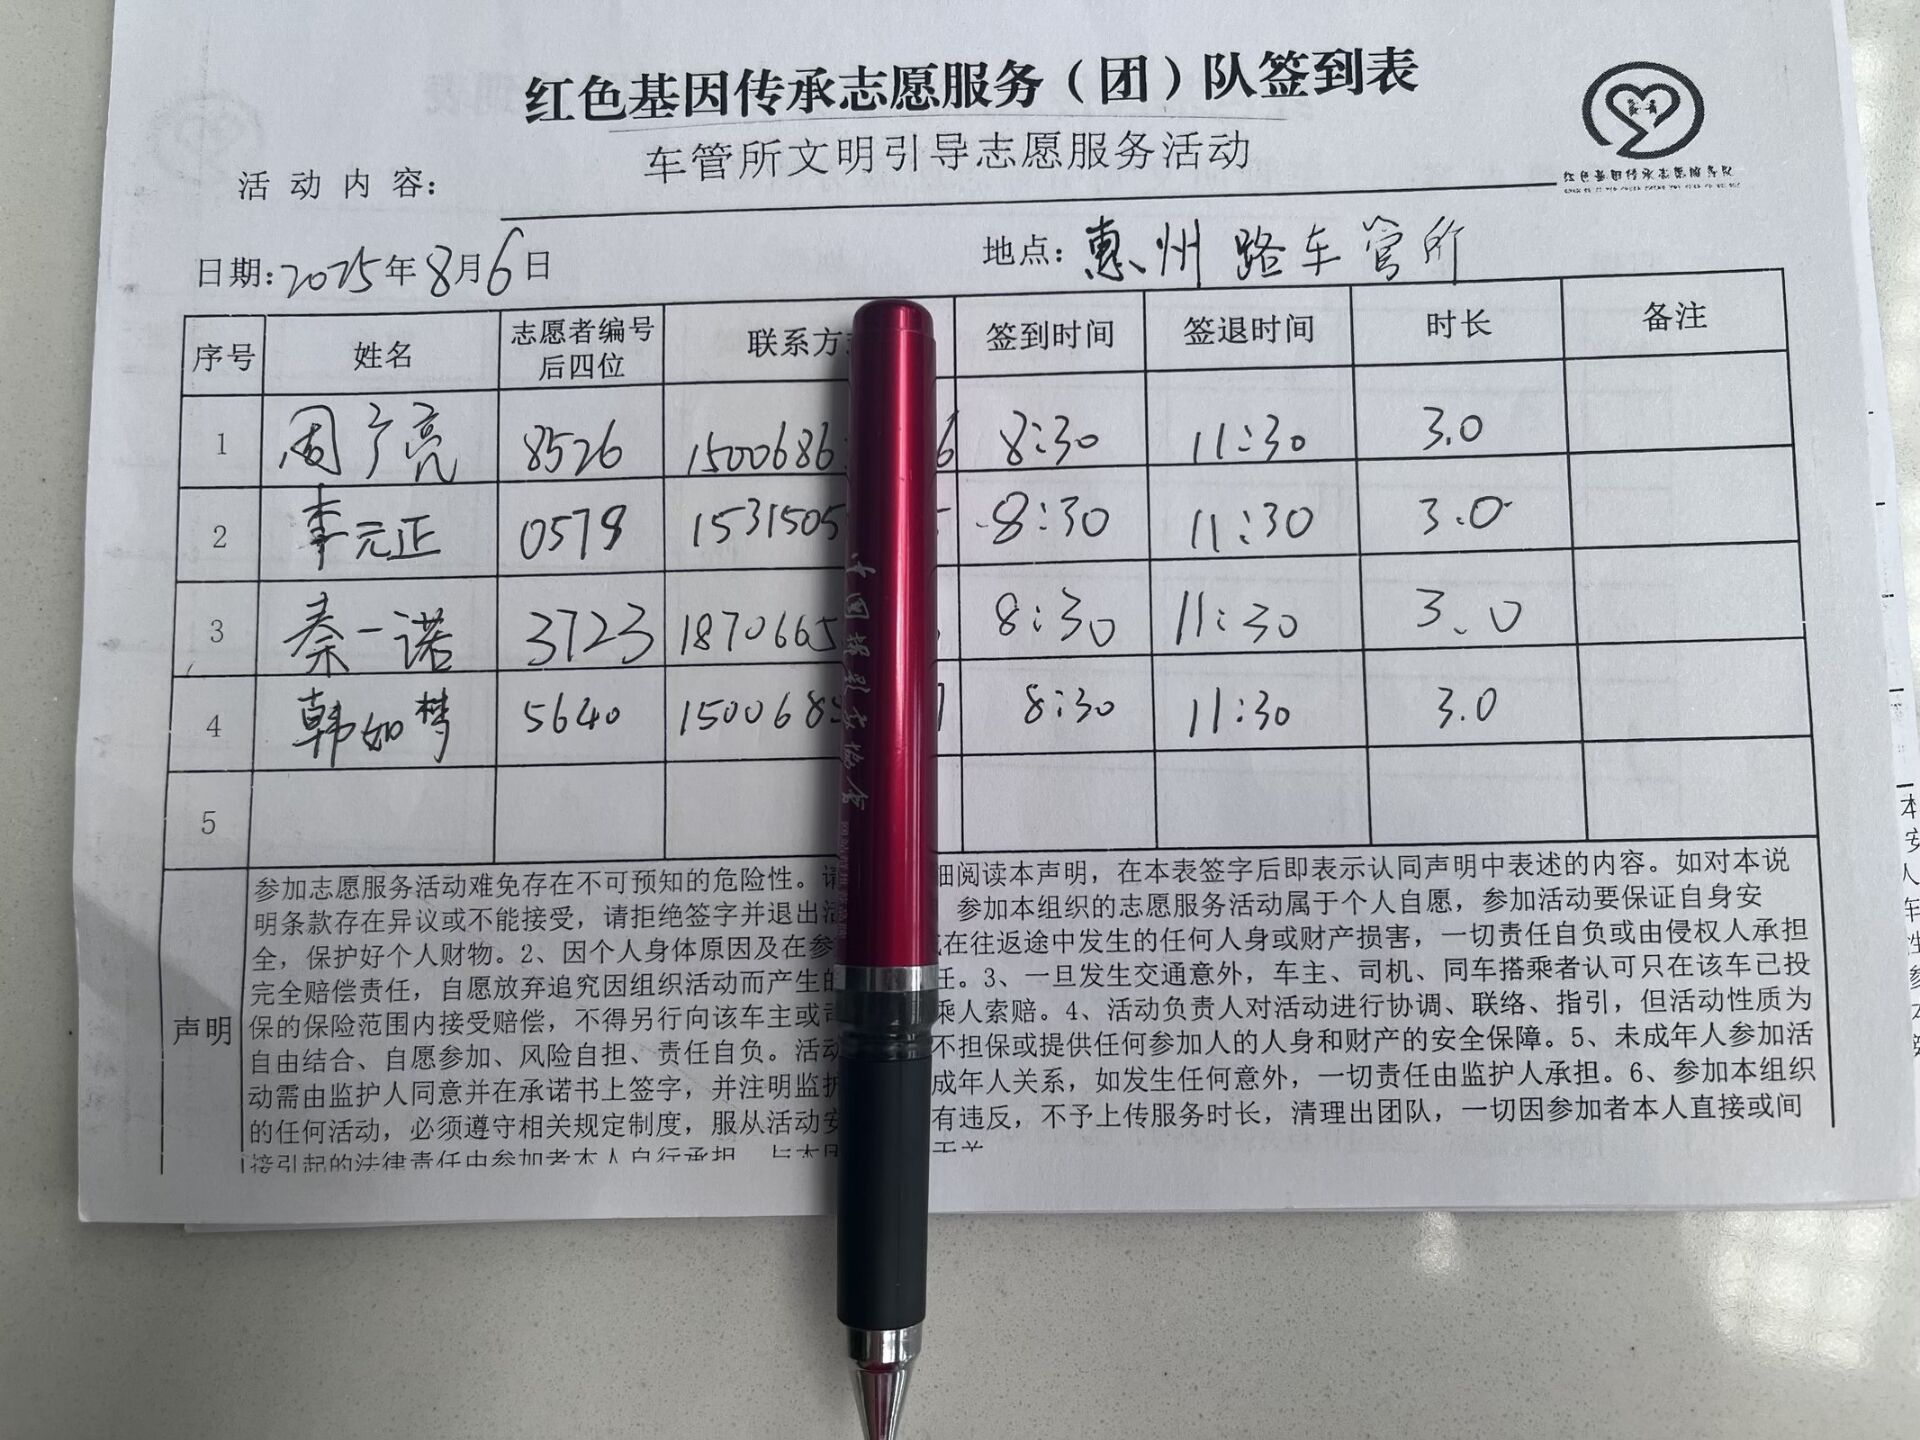 红色基因传承志愿服务（团）队签到表
车管所文明引导志愿服务活动
活动内容：
红色基因传承志愿服务队
日期：2025年8月6日 地点：惠州路车管所
序号 姓名 志愿者编号后四位 联系方 签到时间 签退时间 时长 备注
1 周广亮 8526 1500686 6 8:30 11:30 3.0
2 李元正 0579 1531505 8:30 11:30 3.0
3 秦一诺 3723 1870665 8:30 11:30 3.0
4 韩如梦 5640 150068 8:30 11:30 3.0
5
声明
参加志愿服务活动难免存在不可预知的危险性。请 细阅读本声明，在本表签字后即表示认同声明中表述的内容。如对本说
明条款存在异议或不能接受，请拒绝签字并退出活 参加本组织的志愿服务活动属于个人自愿，参加活动要保证自身安
全，保护好个人财物。2、因个人身体原因及在参 或在往返途中发生的任何人身或财产损害，一切责任自负或由侵权人承担
完全赔偿责任，自愿放弃追究因组织活动而产生的 任。3、一旦发生交通意外，车主、司机、同车搭乘者认可只在该车已投
保的保险范围内接受赔偿，不得另行向该车主或司 乘人索赔。4、活动负责人对活动进行协调、联络、指引，但活动性质为
自由结合、自愿参加、风险自担、责任自负。活动 不担保或提供任何参加人的人身和财产的安全保障。5、未成年人参加活
动需由监护人同意并在承诺书上签字，并注明监护 成年人关系，如发生任何意外，一切责任由监护人承担。6、参加本组织
的任何活动，必须遵守相关规定制度，服从活动安 有违反，不予上传服务时长，清理出团队，一切因参加者本人直接或间
接引起的法律责任由参加者本人自行承担，与本团 无关
中国摄影家协会